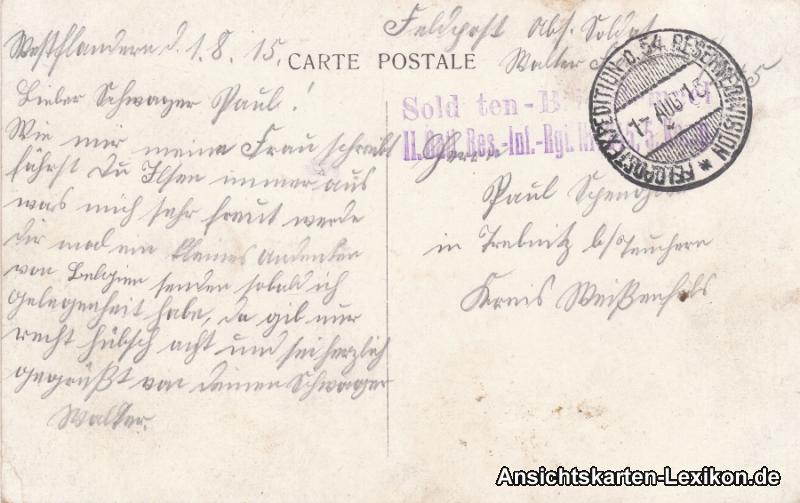 Westflandern d. 1.8.15.
Lieber Schwager Paul!
Wie mir meine Frau schreibt
fährst Du Ilsen immer aus
was mich sehr freut werde
dir mal ein kleines Andenken
von Belgien senden sobald ich
gelegenheit habe, da gib nur
recht hübsch acht und sei herzlich
gegrüßt von deinen Schwager
Walter.
CARTE POSTALE
Feldpost Abs. Soldat
Walter
Sold ten-B
II. Batl. Res.-Inf.-Rgt.
FELDPOSTEXPEDITION D. 54. RESERVEDIVISION
17 AUG 15
Herrn
Paul
in Trebnitz b/Teuchern
Kreis Weißenfels
Ansichtskarten-Lexikon.de